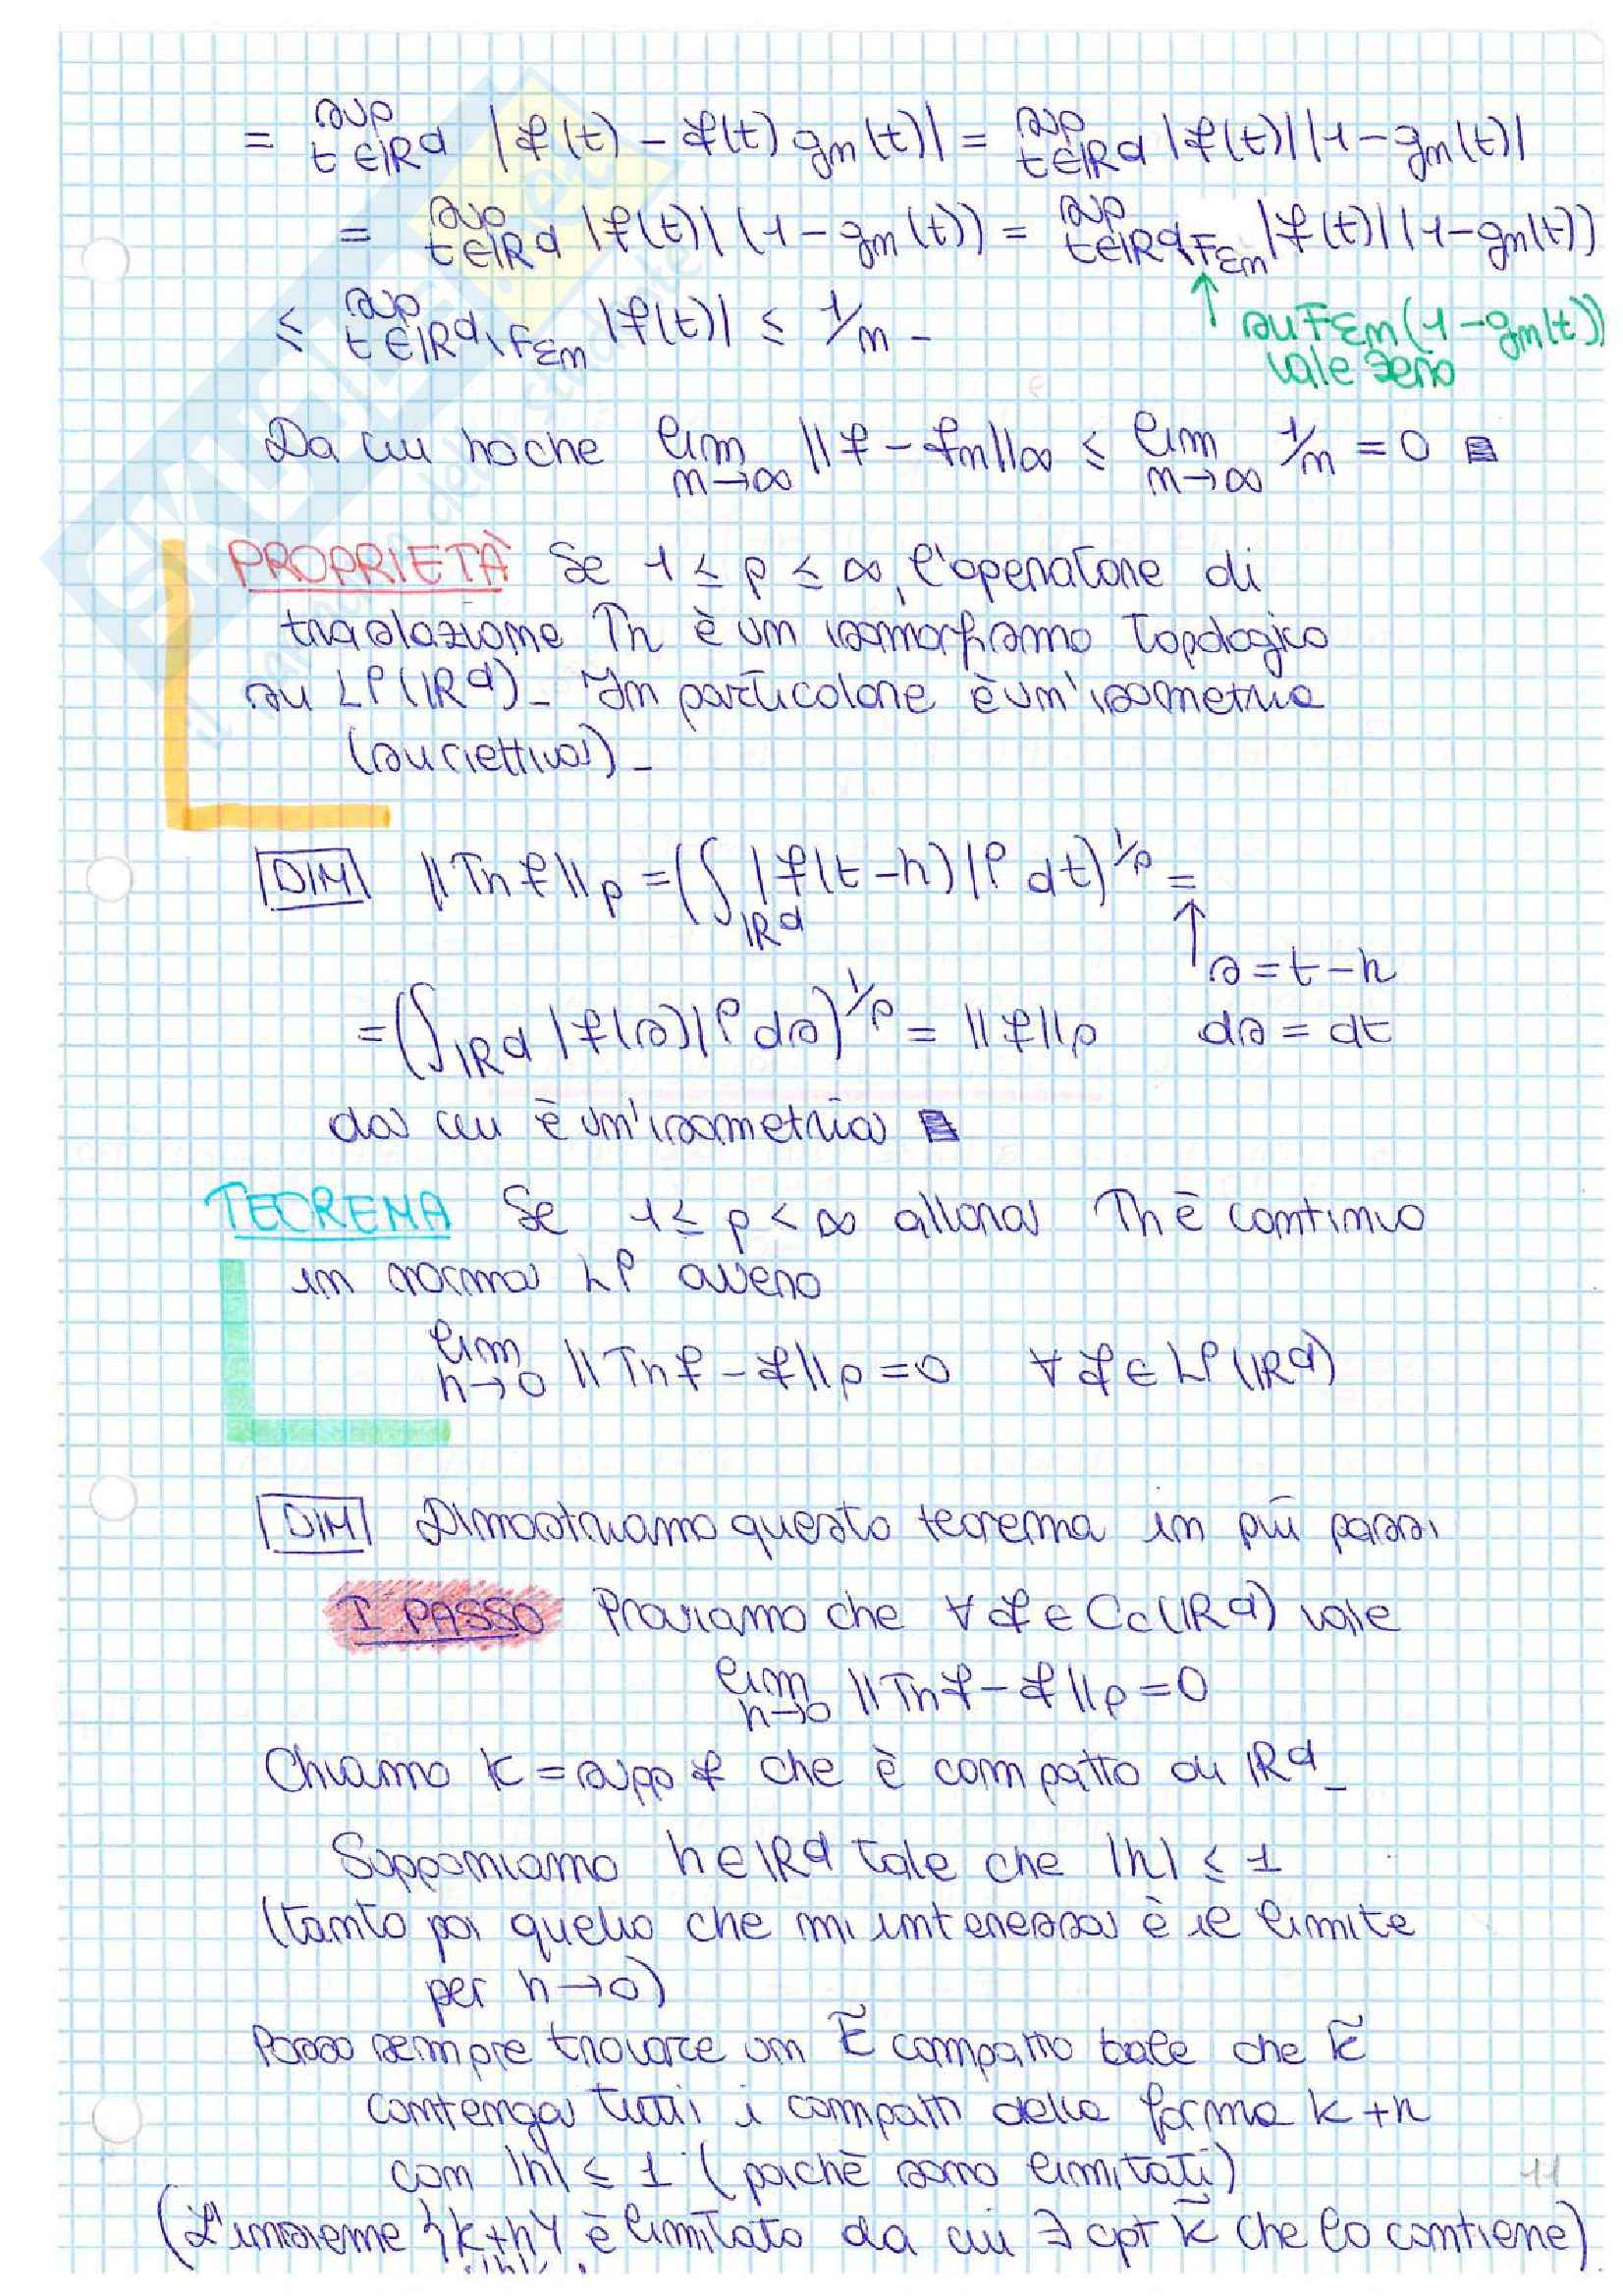 = sup t∈ℝᵈ |f(t) - f(t) gₙ(t)| = sup t∈ℝᵈ |f(t)| |1-gₙ(t)|
= sup t∈ℝᵈ |f(t)| (1-gₙ(t)) = sup t∈ℝᵈ\F_εₙ |f(t)| (1-gₙ(t))
≤ sup t∈ℝᵈ\F_εₙ |f(t)| ≤ 1/n -
↑ su F_εₙ (1-gₙ(t))
vale zero
Da cui ho che lim n→∞ ||f - fₙ||∞ ≤ lim n→∞ 1/n = 0
PROPRIETÀ Se 1 ≤ p ≤ ∞, l'operatore di
traslazione Th è un isomorfismo topologico
su Lᵖ(ℝᵈ)_ In particolare è un'isometria
(suriettiva)_
DIM ||Th f||p = (∫ℝᵈ |f(t-h)|ᵖ dt)^1/p =
↑ s = t-h
= (∫ℝᵈ |f(s)|ᵖ ds)^1/p = ||f||p ds = dt
da cui è un'isometria
TEOREMA Se 1 ≤ p < ∞ allora Th è continuo
in norma Lᵖ ovvero
lim h→0 ||Th f - f||p = 0 ∀ f ∈ Lᵖ(ℝᵈ)
DIM Dimostriamo questo teorema in più passi
I PASSO Proviamo che ∀ f ∈ Cc(ℝᵈ) vale
lim h→0 ||Th f - f||p = 0
Chiamo K = supp f che è compatto di ℝᵈ_
Supponiamo h∈ℝᵈ tale che |h| ≤ 1
(tanto poi quello che mi interessa è il limite
per h→0)
Posso sempre trovare un K̃ compatto tale che K̃
contenga tutti i compatti della forma K+h
con |h| ≤ 1 (poichè sono limitati)
11
(L'insieme {K+h} è limitato da cui ∃ cpt K̃ che lo contiene)